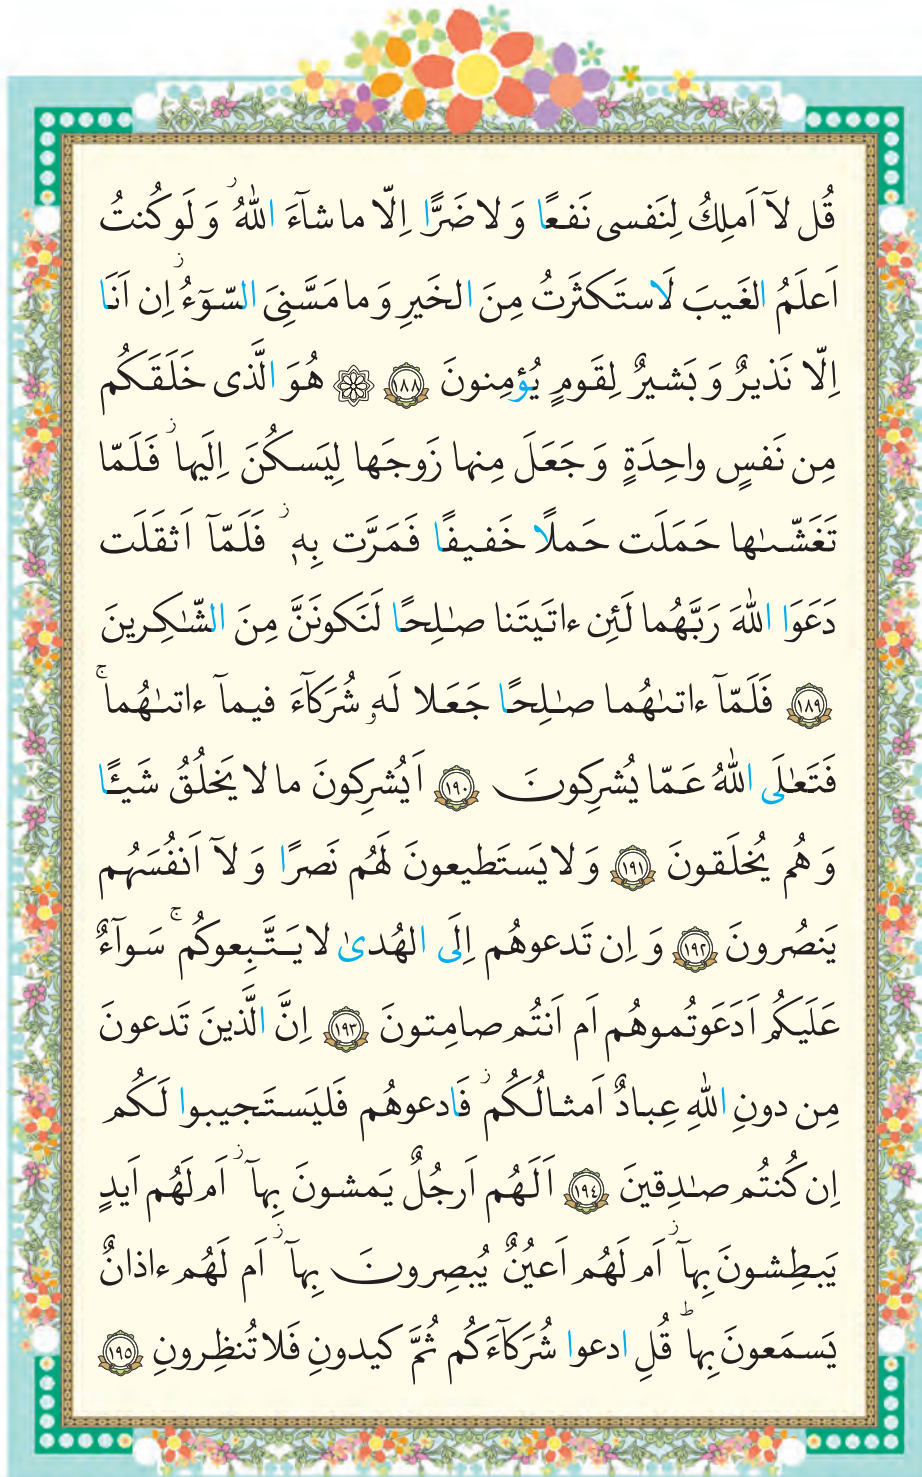 قُل لآ اَملِكُ لِنَفسی نَفعًا وَ لا ضَرًّا اِلّا ما شآءَ اللّٰهُ ۚ وَ لَو كُنتُ
اَعلَمُ الغَيبَ لَاستَكثَرتُ مِنَ الخَيرِ وَ ما مَسَّنِیَ السّوٓءُ ۚ اِن اَنَا
اِلّا نَذیرٌ وَ بَشیرٌ لِقَومٍ يُؤمِنونَ ﴿١٨٨﴾ ۞ هُوَ الَّذی خَلَقَكُم
مِن نَفسٍ واحِدَةٍ وَ جَعَلَ مِنها زَوجَها لِيَسكُنَ اِلَيها ۖ فَلَمّا
تَغَشّىٰها حَمَلَت حَملًا خَفيفًا فَمَرَّت بِهٖ ۖ فَلَمّآ اَثقَلَت
دَعَوَا اللّٰهَ رَبَّهُما لَئِن ءاتَيتَنا صٰلِحًا لَنَكونَنَّ مِنَ الشّٰكِرينَ
﴿١٨٩﴾ فَلَمّآ ءاتىٰهُما صٰلِحًا جَعَلا لَهٗ شُرَكآءَ فيمآ ءاتىٰهُما ۚ
فَتَعٰلَى اللّٰهُ عَمّا يُشرِكونَ ﴿١٩٠﴾ اَيُشرِكونَ ما لا يَخلُقُ شَيـًٔا
وَ هُم يُخلَقونَ ﴿١٩١﴾ وَ لا يَستَطيعونَ لَهُم نَصرًا وَ لآ اَنفُسَهُم
يَنصُرونَ ﴿١٩٢﴾ وَ اِن تَدعوهُم اِلَى الهُدىٰ لا يَتَّبِعوكُم ۚ سَوآءٌ
عَلَيكُم اَدَعَوتُموهُم اَم اَنتُم صامِتونَ ﴿١٩٣﴾ اِنَّ الَّذينَ تَدعونَ
مِن دونِ اللّٰهِ عِبادٌ اَمثالُكُم ۖ فَادعوهُم فَليَستَجيبوا لَكُم
اِن كُنتُم صٰدِقينَ ﴿١٩٤﴾ اَلَهُم اَرجُلٌ يَمشونَ بِهآ ۖ اَم لَهُم اَيدٍ
يَبطِشونَ بِهآ ۖ اَم لَهُم اَعيُنٌ يُبصِرونَ بِهآ ۖ اَم لَهُم ءاذانٌ
يَسمَعونَ بِها ؕ قُلِ ادعوا شُرَكآءَكُم ثُمَّ كيدونِ فَلا تُنظِرونِ ﴿١٩٥﴾